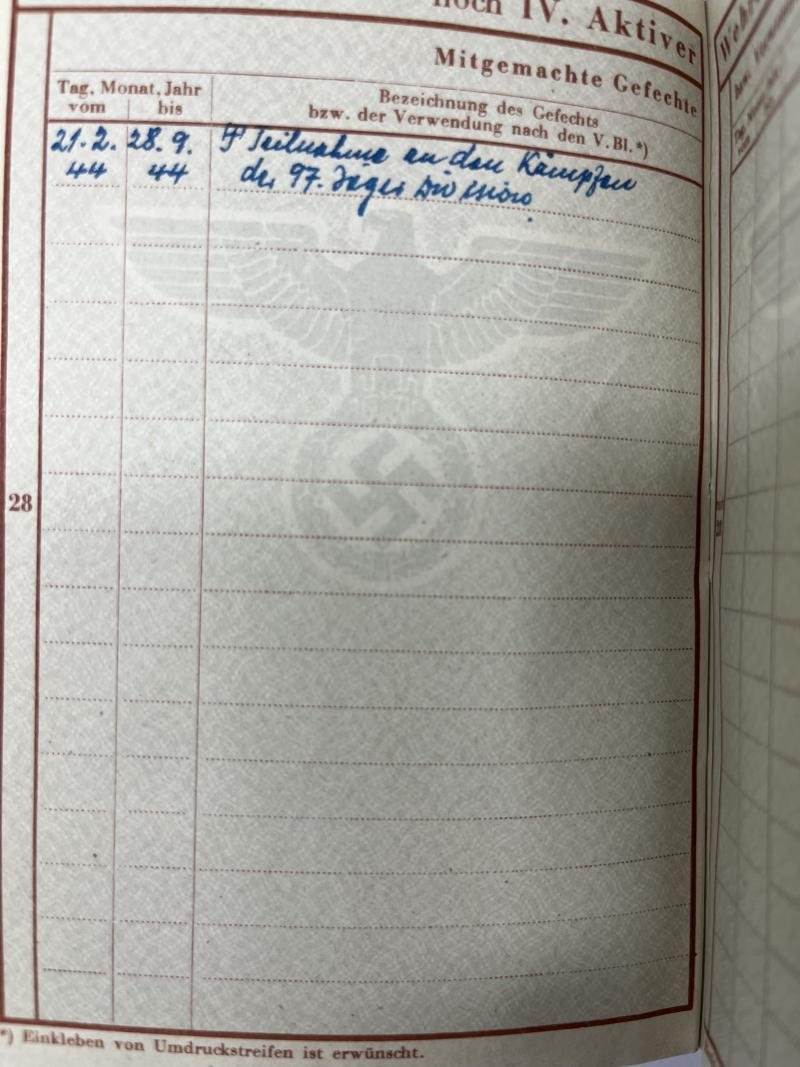 noch IV. Aktiver
Mitgemachte Gefechte
Tag, Monat, Jahr
vom bis
Bezeichnung des Gefechts
bzw. der Verwendung nach den V.Bl.*)
21.2. 28.9. Teilnahme an den Kämpfen
44 44 der 97. Jäger Division
28
*) Einkleben von Umdruckstreifen ist erwünscht.